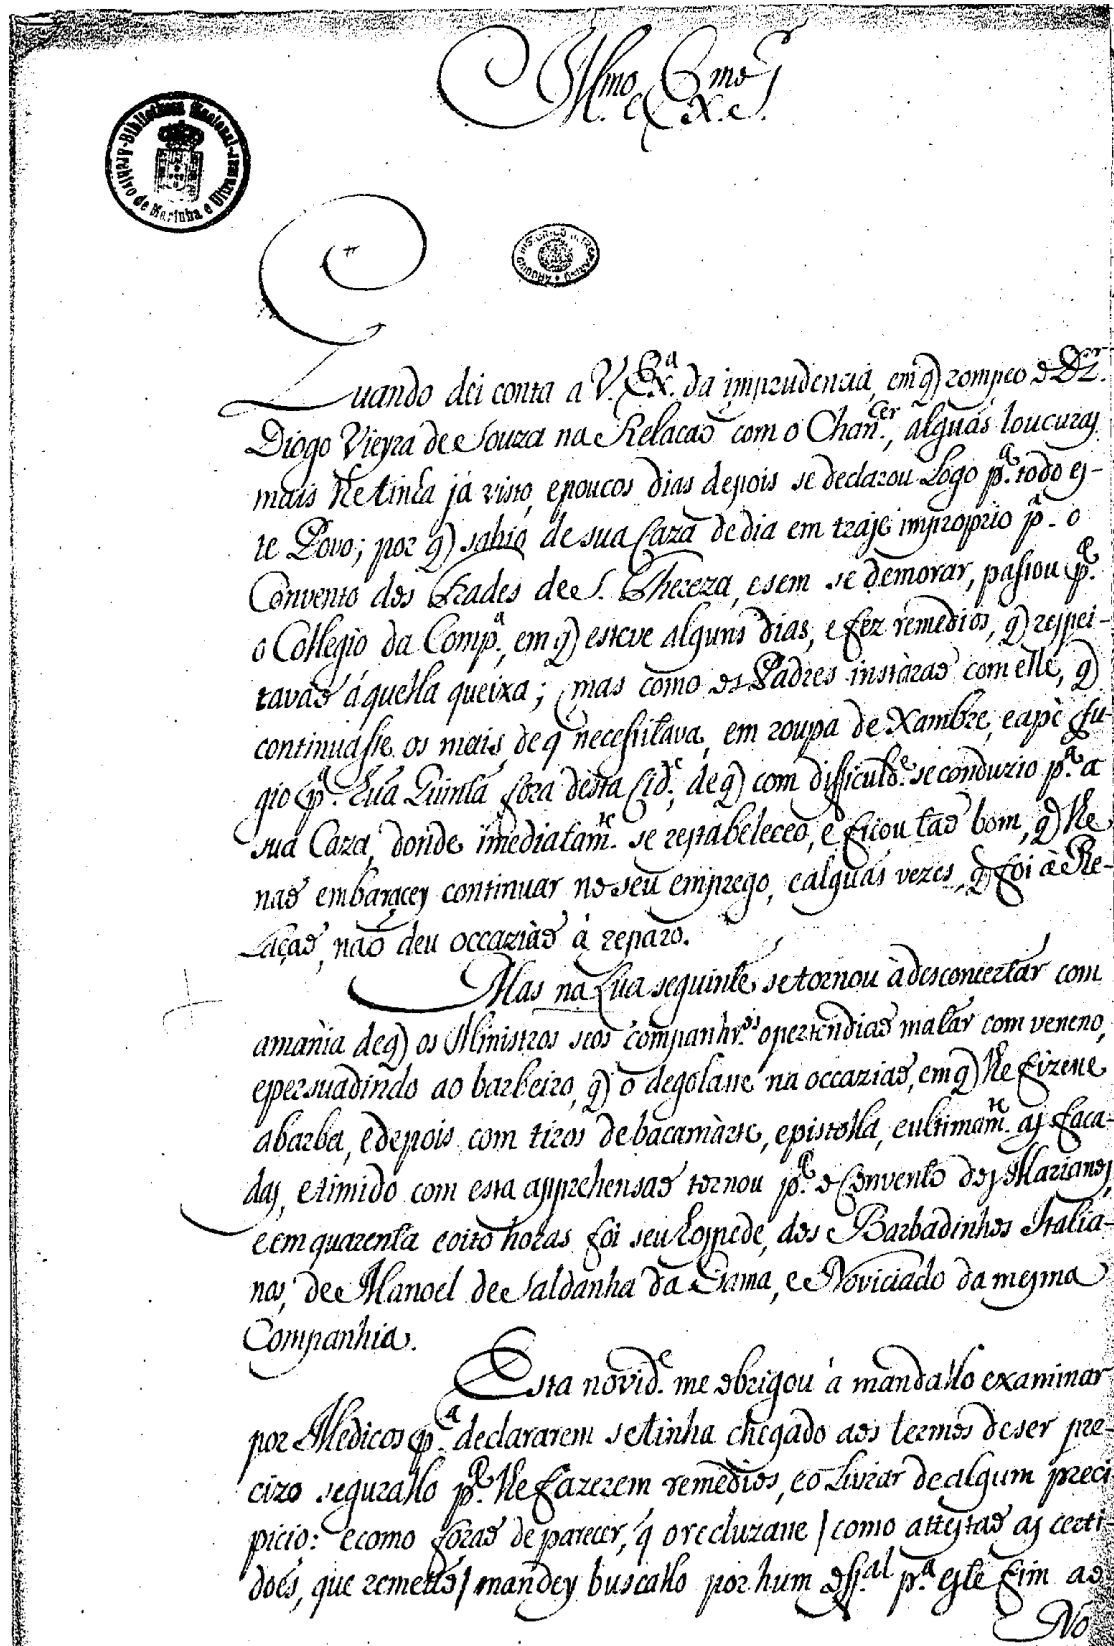 Illmo. e Exmo. Sr.
Bibliotheca Nacional
Archivo de Marinha e Ultramar
Quando dei conta a V. Exa. da imprudencia, em q̃ rompeo o Dezor.
Diogo Vieyra de Souza na Relacaõ com o Chancer., alguãs loucuras
mais lhe tinha já visto, e poucos dias depois se declarou logo pa. todo es-
te Povo; por q̃ sahio de sua Caza de dia em traje improprio pa. o
Convento dos Frades de S. Thereza, e sem se demorar, passou pa.
o Collegio da Compa., em q̃ esteve alguns dias, e fez remedios, q̃ respei-
tavaõ áquella queixa; mas como os Padres instàraõ com elle, q̃
continuasse os mais, de q̃ necessitava, em roupa de Xambre, e a pè fu-
gio pa. huã Quinta fora desta Cide., de q̃ com difficulde. se conduzio pa. a
sua Caza, donde imediatamte. se restabeleceo, e ficou taõ bom, q̃ lhe
naõ embaracey continuar no seu emprego, e alguãs vezes, q̃ foi à Re-
laçaõ, naõ deu occaziaõ á reparo.
Mas na Lua seguinte se tornou à desconcertar com
a mània de q̃ os Ministros seos companhros. o pertendiaõ matar com veneno,
e persuadindo ao barbeiro, q̃ o degolasse na occaziaõ, em q̃ lhe fizesse
a barba, e depois com tiros de bacamàrte, e pistolla, e ultimamte. as faca-
das, e timido com esta apprehensaõ tornou pa. o Convento dos Marianos,
e em quarenta e oito horas foi seu hospede, dos Barbadinhos Italia-
nos, de Manoel de Saldanha da Gama, e Noviciado da mesma
Companhia.
Esta novide. me obrigou á mandallo examinar
por Medicos pa. declararem se tinha chegado aos termos de ser pre-
cizo segurallo pa. lhe fazerem remedios, e o livrar de algum preci-
picio: e como foraõ de parecer, q̃ o recluzasse / como attestaõ as certi-
does, que remetto / mandey buscallo por hum offal. pa. este fim ao
No